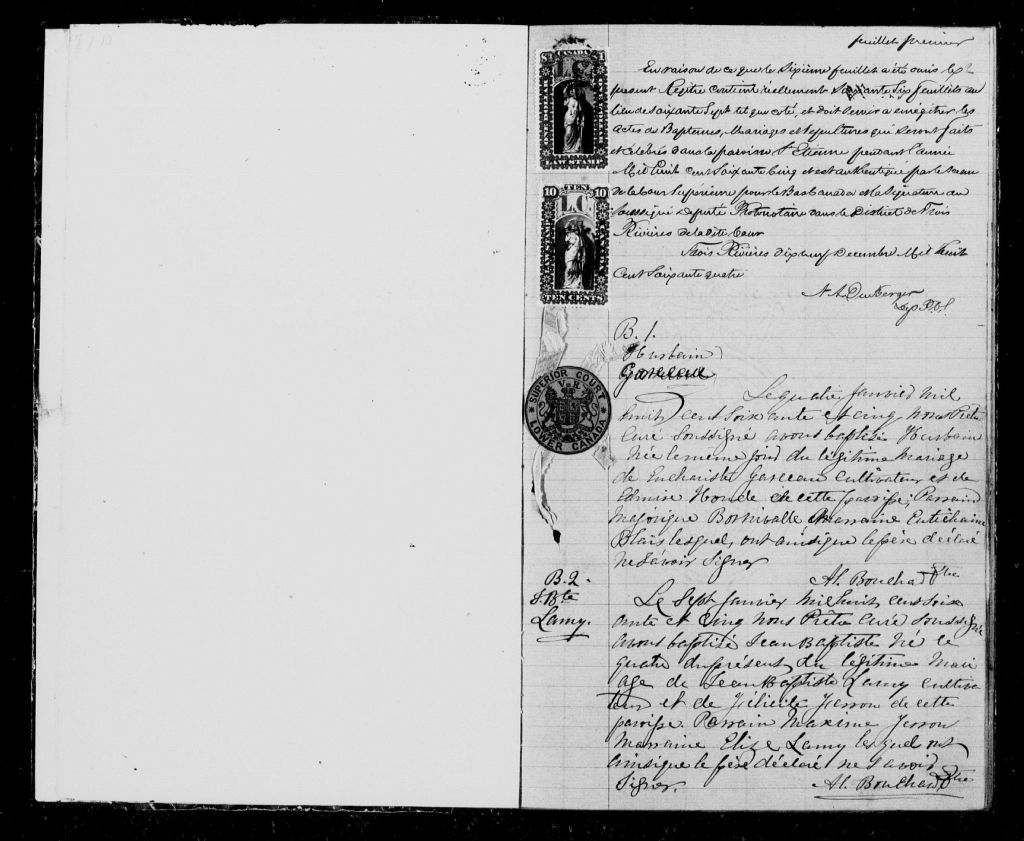 feuillet premier
CANADA
$1 1
L.C.
LAW STAMP
En raison de ce que le Sixième feuillet a été omis le
present Regitre contient réellement Soixante Six feuillets au
lieu de Soixante Sept tel que coté, et doit servir a enrégitrer les
actes de Baptemes, Mariages et Sepultures qui seront faits
et célébrés dans la paroisse St Etienne pendant l'année
Mil huit cent Soixante Cinq et est authentiqué par le Sceau
de la Cour Supérieure pour le Bas Canada et la Signature du
Soussigné Deputé Protonotaire dans le District de Trois
Rivières de la dite Cour
Trois Rivières dix neuf Decembre Mil huit
Cent Soixante quatre
TEN
10 10
L.C.
TEN CENTS
Dep P.C.S.
B. 1.
Garceau
SUPERIOR COURT
V R
LOWER CANADA
Le quatre Janvier mil
huit cent soixante et cinq nous Prêtre
Curé Soussigné avons baptisé
Née le même jour du légitime mariage
de Euchariste Garceau Cultivateur et de
Edwire Houde de cette paroisse, Parrain
Majorique Bornivalle Marraine
Blais lesquels ont ainsi que le père déclaré
ne savoir Signer
Al. Bouchard Ptre
B. 2.
J. Bte
Lamy.
Le Sept Janvier mil huit cent soix
ante et Cinq nous Prêtre Curé soussigné
avons baptisé Jean Baptiste né le
quatre du présent du légitime Mari
age de Jean Baptiste Lamy Cultiva
teur et de Félicité Ferron de cette
paroisse. Parrain Maxime Ferron
Marraine Elise Lamy lesquels ont
ainsi que le père déclaré ne savoir
Signer.
Al. Bouchard Ptre